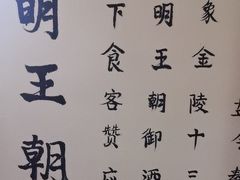 象金陵十三
明王朝御酒
下食客赞
明王朝